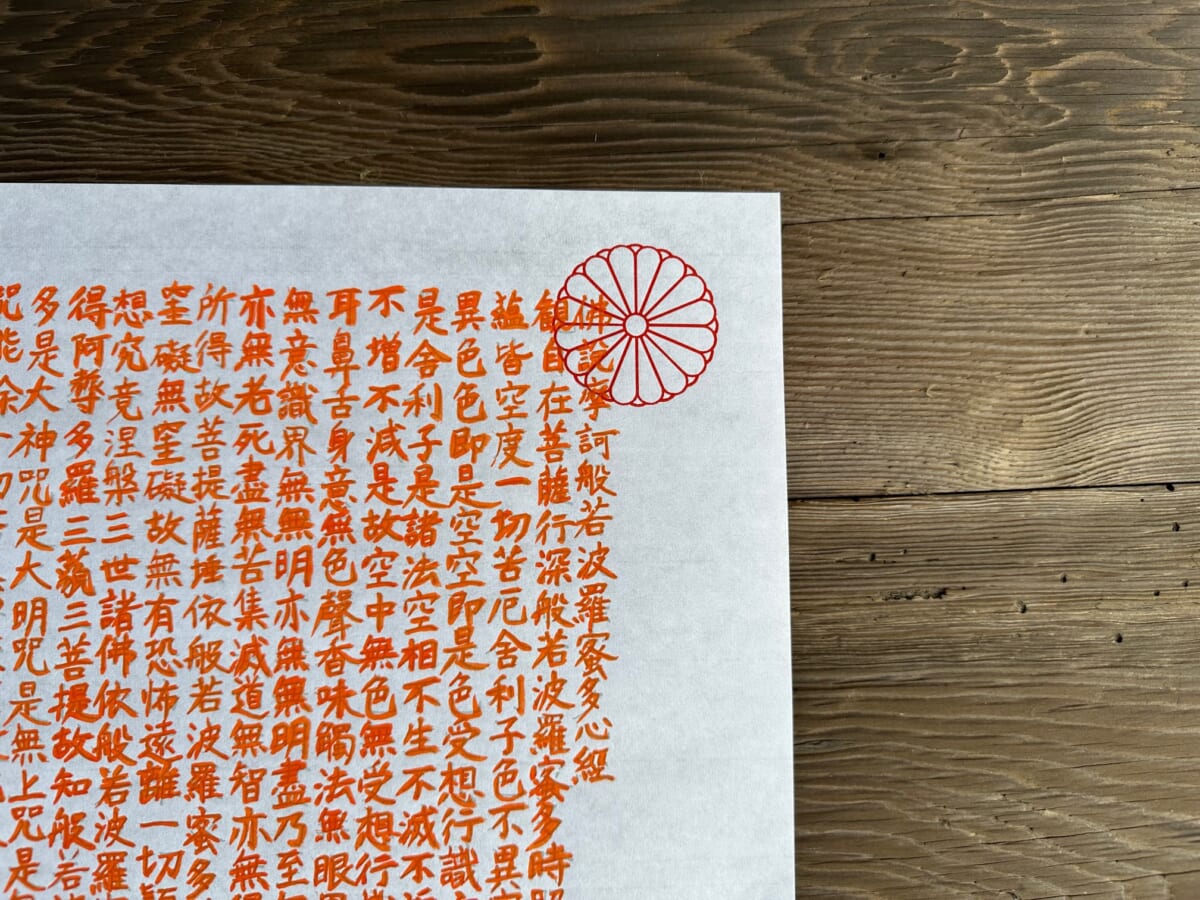 佛説摩訶般若波羅蜜多心経
観自在菩薩行深般若波羅蜜多時
蘊皆空度一切苦厄舍利子色不異空
異色色即是空空即是色受想行識
是舎利子是諸法空相不生不滅不
不増不減是故空中無色無受想行
耳鼻舌身意無色聲香味觸法無眼
無意識界無無明亦無無明盡乃至
亦無老死盡無苦集滅道無智亦無
所得故菩提薩埵依般若波羅蜜多
罣礙無罣礙故無有恐怖遠離一切
想究竟涅槃三世諸佛依般若波羅
得阿耨多羅三藐三菩提故知般若
多是大神咒是大明咒是無上咒是
咒能除一切